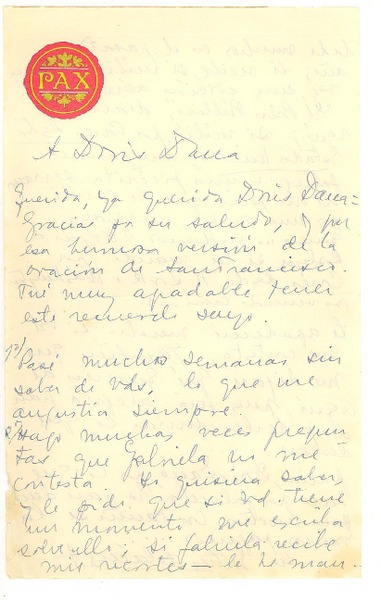 PAX
A Doris Dana
Querida, ya querida Doris Dana=
Gracias por su saludo, y por
esa hermosa versión de la
oración de San Francisco.
Fué muy agradable tener
este recuerdo suyo.
1º/
Pasé muchas semanas sin
saber de Vds, lo que me
angustia siempre.
2º/ Hago muchas veces pregun
tas que Gabriela no me
contesta. Yo quisiera saber,
y le pido que si Vd. tiene
un momento me escriba
sobre ello; si Gabriela recibe
mis recortes — le he man--